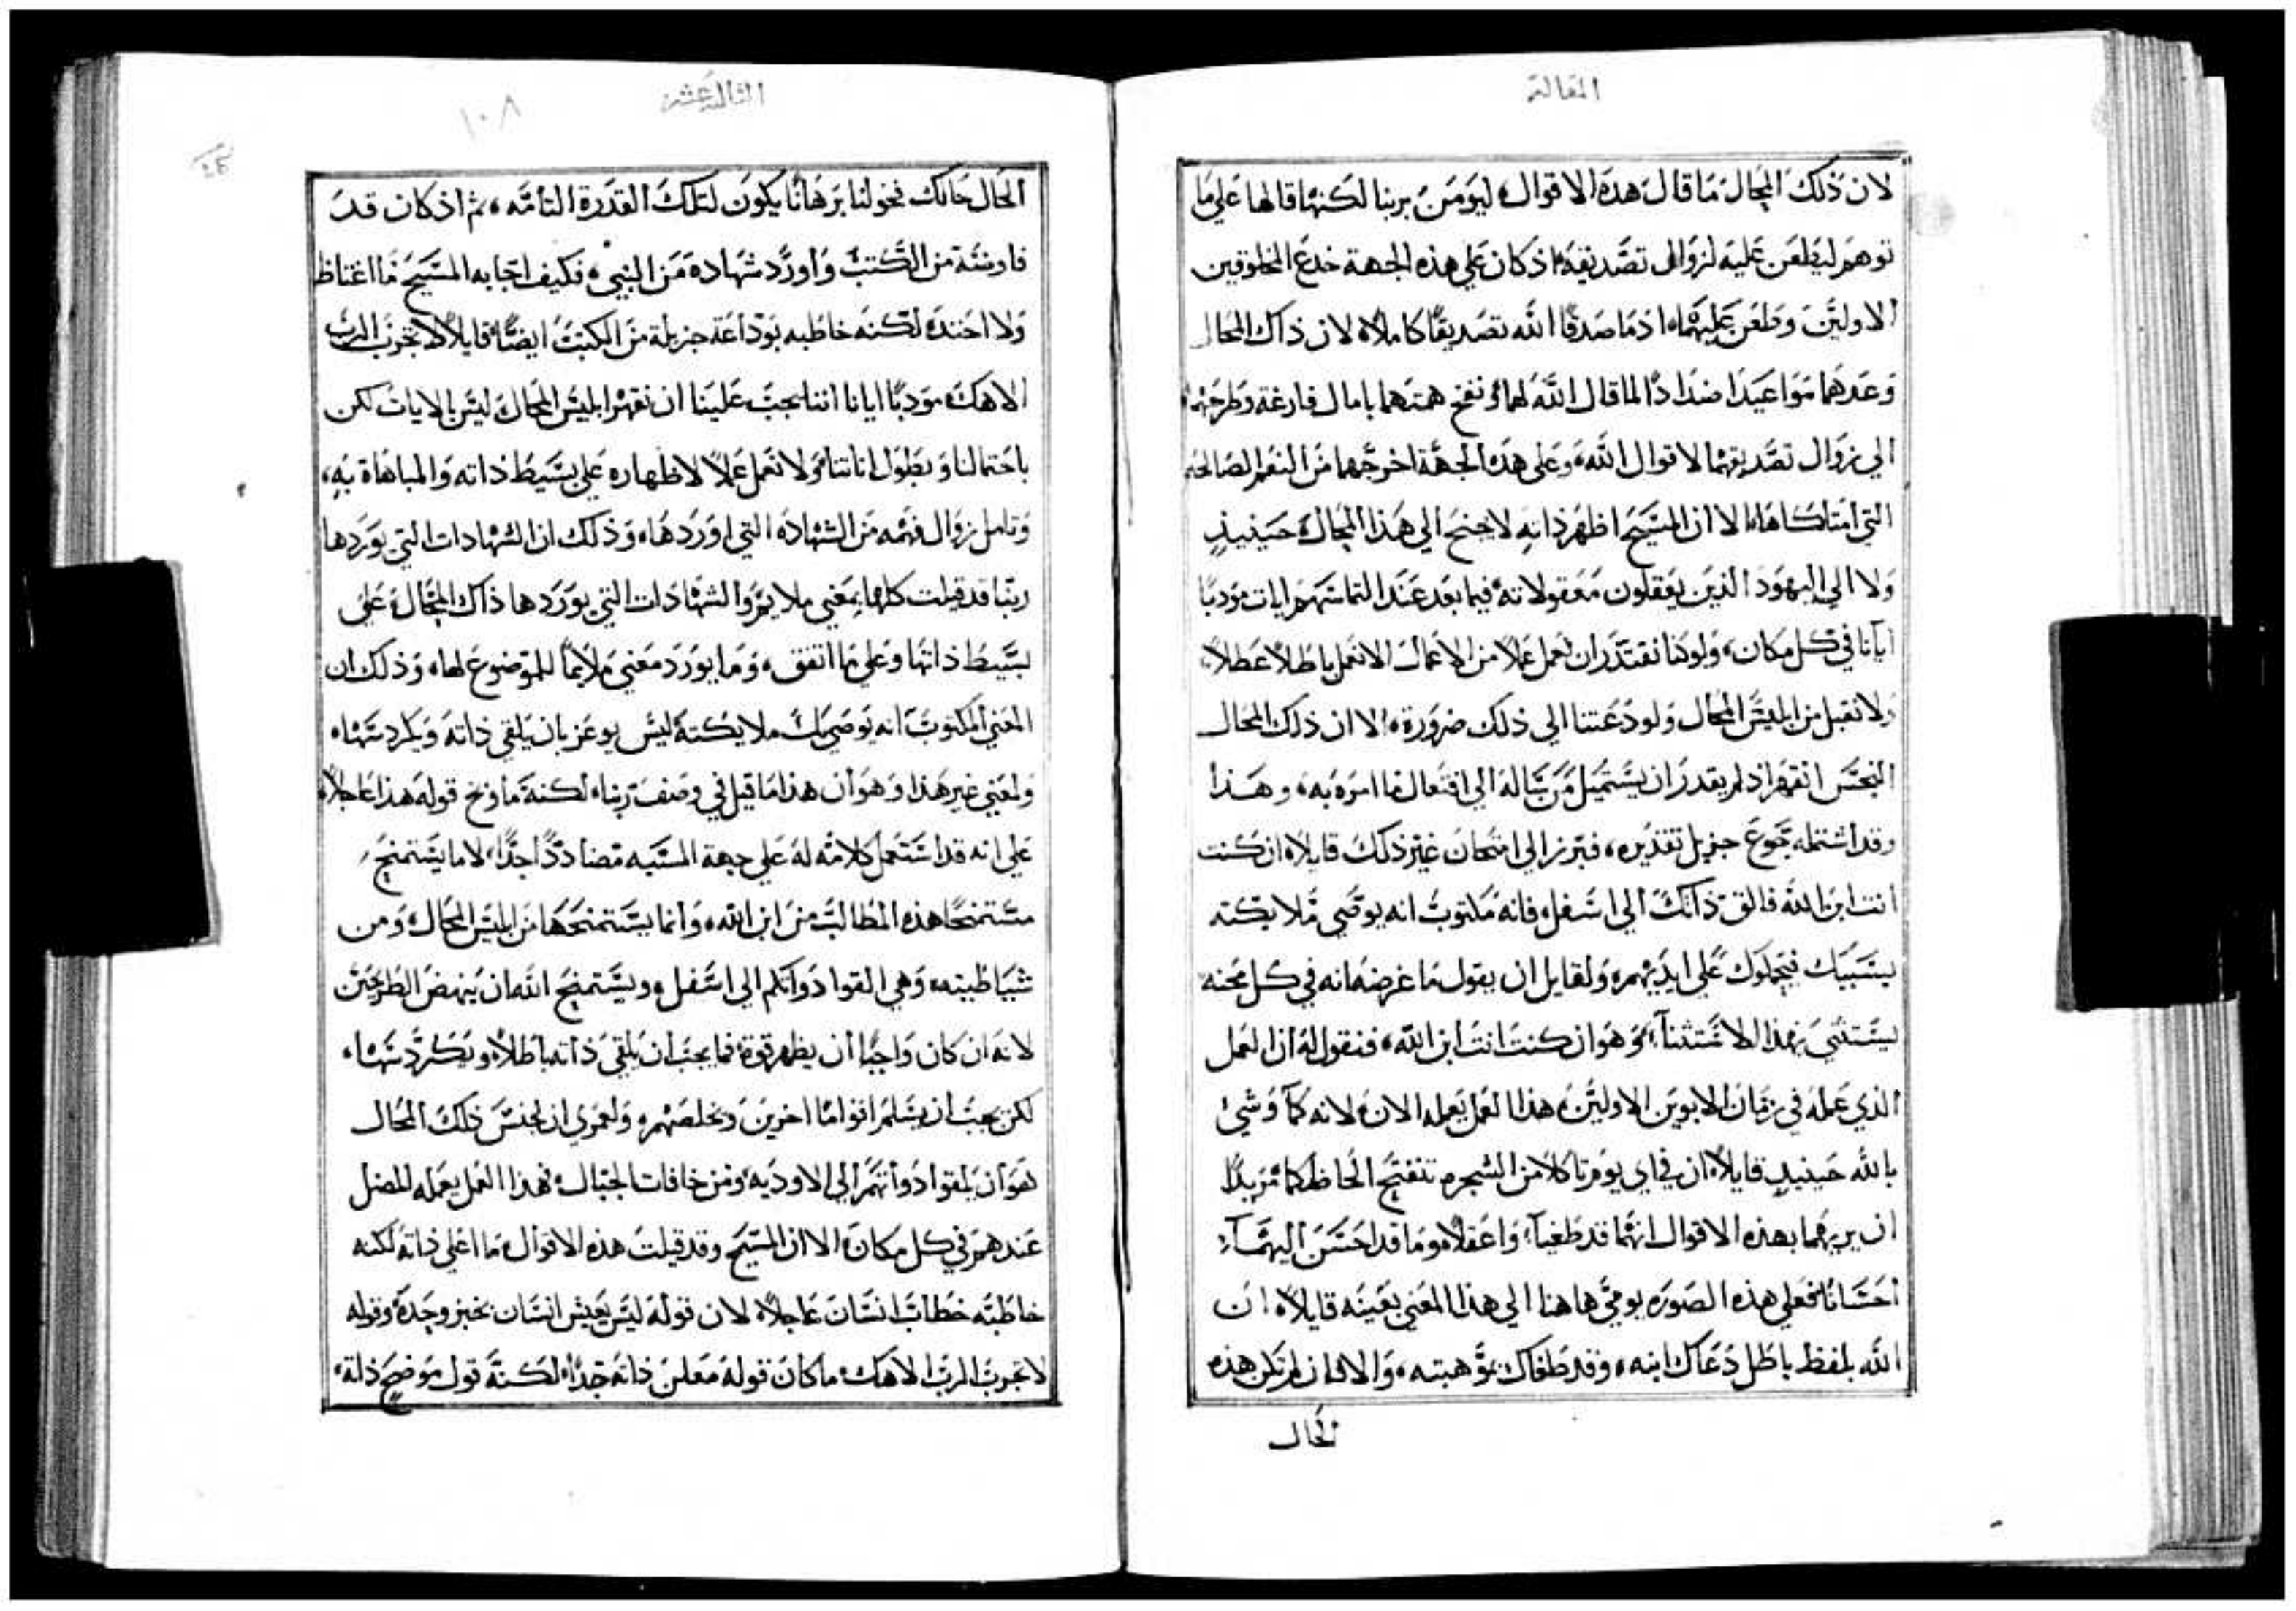 المقالة
لان ذلك المحال ما قال هذه الاقوال ليومن بربنا لكنها قالها علي ما
توهم ليطعن عليه لزوال تصديقه اذ كان علي هذه الجهة خدع المخلوقين
الاولين وطعن عليهما اذ ما صدقا الله تصديقا كاملا لان ذاك المحال
وعدهما مواعيدا ضدادا لما قال الله لهما ونفخ همتهما بامال فارغة وطرحهما
الي زوال تصديقهما لاقوال الله وعلي هذه الجهة اخرجهما من النعم الصالحة
التي امتلكاها الا ان المسيح اظهر ذاته لا جنح الي هذا المحال حينيذ
ولا الي اليهود الذين يعقلون معقولاته فيما بعد عند التماسهم ايات مودبا
ايانا في كل مكان ولو كنا نقتدر ان نعمل عملا من الاعمال الا نعمل باطلا عطلا
ولا نقبل من ابليس المحال ولو دعتنا الي ذلك ضرورة الا ان ذلك المحال
النجس انقهر اذ لم يقدر ان يستميل من يتاله الي افتعال ما امره به وهذا
وقد اشتمله تجوع جزيل تقديره فبرز الي امتحان غير ذلك قايلا ان كنت
انت ابن الله فالق ذاتك الي اسفل فانه مكتوب انه يوصي ملايكته
بسببك فيحملوك علي ايديهم ولقايل ان يقول ما غرضه انه في كل محنه
يستثني بهذا الاستثناء وهو ان كنت انت ابن الله فنقول له ان العمل
الذي عمله في زمان الابوين الاولين هذا العمل يعمله الان لانه كما وشي
بالله حينيذ قايلا ان في اي يوم تاكلا من الشجرة تنفتح الحاظكما مريدا
ان يريهما بهذه الاقوال انهما قد طغيا واغفلا وما قد احسن اليهما
احسانا فعلي هذه الصورة يومي هاهنا الي هذا المعني بعينه قايلا ان
الله بلفظ باطل دعاك ابنه وقد طغاك بموهبته والا فان لم تكن هذه
الحال
الثالثة عشر
١٠٨
الحال حالك فخولنا برهانا يكون لتلك القدرة التامه ثم اذ كان قد
فاوضه من الكتب واورد شهادة من النبي فكيف اجابه المسيح ما اغتاظ
ولا احتد لكنه خاطبه بوداعة جزيلة من الكتب ايضا قايلا لا تجرب الرب
الاهك مودبا ايانا اننا يجب علينا ان نقهر ابليس المحال ليس بالايات لكن
باحتمالنا وبطول اناتنا ولا نعمل عملا لاظهاره علي بسيط ذاته والمباهاة به
وتامل زوال فهمه من الشهاده التي اوردها وذلك ان الشهادات التي يوردها
ربنا قد قيلت كلها بمعني ملايم والشهادات التي يوردها ذاك المحال علي
بسيط ذاتها وعلي ما اتفق وما يورد معني ملايما للموضوع لها وذلك ان
المعني المكتوب انه يوصي بك ملايكته ليس يوعز بان يلقي ذاته ويكردسها
ولمعني غير هذا وهو ان هذا ما قيل في وصف ربنا لكنه ما وبخ قوله هذا عاجلا
علي انه قد استعمل كلامه له علي جهة المسبه مضاددا جدا لا ما يستمنح
مستمنحا هذه المطالب من ابن الله وانما يستمنحها من ابليس المحال ومن
شياطينه وهي القوا ذواتكم الي اسفل ويستمنح الله ان ينهض الطريحين
لانه ان كان واجبا ان يظهر قوة فما يجب ان يلقي ذاته باطلا ويكردسها
لكن يجب ان يسلم اقواما اخرين ويخلصهم ولعمري ان لجنس ذلك المحال
هو ان يلقوا ذواتهم الي الاوديه ومن حافات الجبال فهذا العمل يعمله المضل
عندهم في كل مكان الا ان المسيح وقد قيلت هذه الاقوال ما اعلي ذاته لكنه
خاطبه خطاب انسان عاجلا لان قوله ليس يعيش انسان بخبز وحده وقوله
لا تجرب الرب الاهك ما كان قوله معلن ذاته جدا لكنه قول موضح ذلة